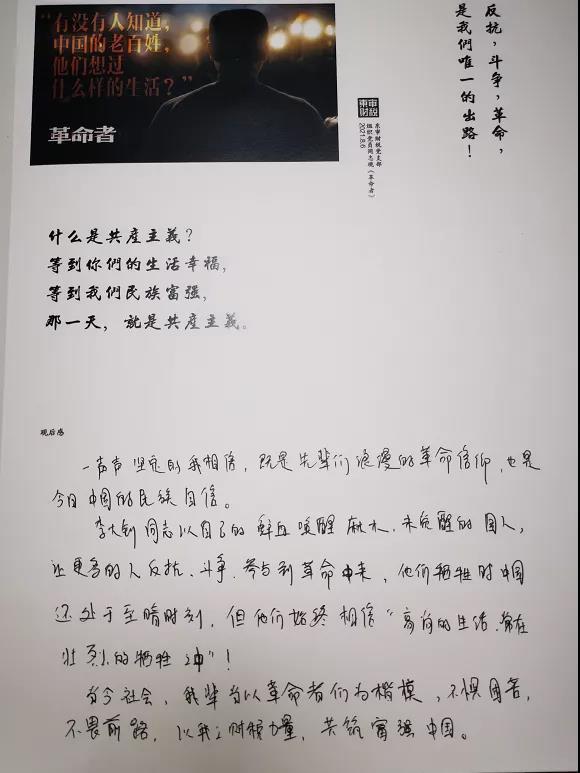 “有没有人知道，
中国的老百姓，
他们想过
什么样的生活？”
革命者
反抗，斗争，革命，
是我們唯一的出路！
東审
财税
东审财税党支部
组织党员同志观《革命者》
2021.8.6
什么是共產主義？
等到你們的生活幸福，
等到我們民族富强，
那一天，就是共產主義。
观后感
一声声坚定的我相信，既是先辈们浪漫的革命信仰，也是
今日中国的民族自信。
李大钊同志以自己的鲜血唤醒麻木、未觉醒的国人，
让更多的人反抗、斗争、参与到革命中来，他们牺牲时中国
还处于至暗时刻，但他们始终相信“高尚的生活，常在
壮烈的牺牲中”！
当今社会，我辈当以革命者们为楷模，不惧困苦，
不畏前路，以我之财税力量，共筑富强中国。